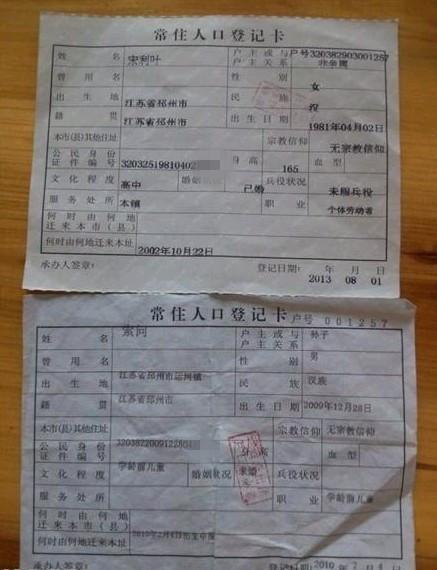 常住人口登记卡
姓名 宋利叶 户主或与户主关系 户号320382903001257 非亲属
曾用名 性别 女
出生地 江苏省邳州市 民族 汉
籍贯 江苏省邳州市 出生日期 1981年04月02日
本市(县)其他住址 宗教信仰 无宗教信仰
公民身份证件编号 32032519810402 身高 165 血型
文化程度 高中 婚姻状况 已婚 兵役状况 未服兵役
服务处所 本镇 职业 个体劳动者
何时由何地迁来本市(县)
何时由何地迁来本址 2002年10月22日
承办人签章: 登记日期: 年 月 日
2013 08 01
常住人口登记卡 户号 001257
姓名 户主或与户主关系 孙子
曾用名 性别 男
出生地 江苏省邳州市运河镇 民族 汉族
籍贯 江苏省邳州市 出生日期 2009年12月28日
本市(县)其他住址 宗教信仰 无宗教信仰
公民身份证件编号 32038220091228 身高 血型
文化程度 学龄前儿童 婚姻状况 未婚 兵役状况
服务处所 职业 学龄前儿童
何时由何地迁来本市(县)
何时由何地迁来本址 2010年2月4日
承办人签章: 登记日期: 2010 年 2 月 4 日